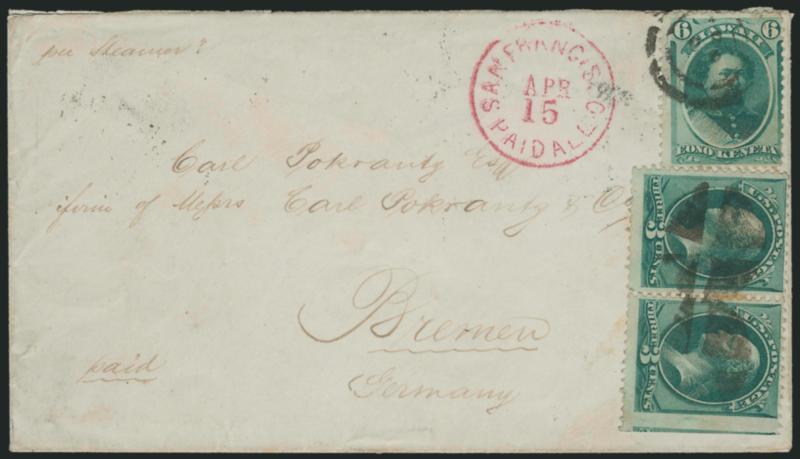 per Steamer
SAN FRANCISCO
APR
15
PAID ALL
6 HAWAII 6
EONO KENETA
Carl Pokrantz Esq
firm of Messrs Carl Pokrantz & Co
Bremen
Germany
paid
U.S. POSTAGE
3
THREE CENTS
U.S. POSTAGE
3
THREE CENTS